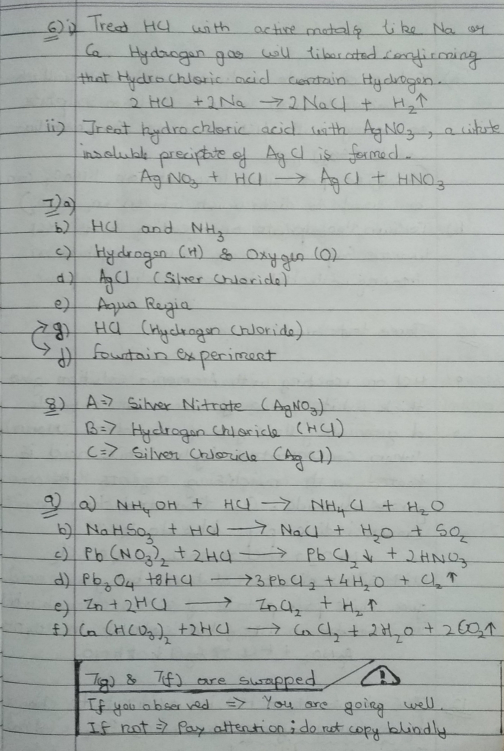 6) i) Treat HCl with active metals like Na or
Ca Hydrogen gas will liberated confirming
that Hydrochloric acid contain Hydrogen.
2HCl + 2Na → 2NaCl + H₂↑
ii) Treat hydrochloric acid with AgNO₃, a white
insoluble preciptate of AgCl is formed.
AgNO₃ + HCl → AgCl + HNO₃
7) a)
b) HCl and NH₃
c) Hydrogen (H) & Oxygen (O)
d) AgCl (Silver Chloride)
e) Aqua Regia
g) HCl (Hydrogen Chloride)
f) Fountain experiment
8) A=> Silver Nitrate (AgNO₃)
B=> Hydrogen Chloride (HCl)
C=> Silver Chloride (AgCl)
9) a) NH₄OH + HCl → NH₄Cl + H₂O
b) NaHSO₃ + HCl → NaCl + H₂O + SO₂
c) Pb(NO₃)₂ + 2HCl → PbCl₂↓ + 2HNO₃
d) Pb₃O₄ + 8HCl → 3PbCl₂ + 4H₂O + Cl₂↑
e) Zn + 2HCl → ZnCl₂ + H₂↑
f) Ca(HCO₃)₂ + 2HCl → CaCl₂ + 2H₂O + 2CO₂↑
7(g) & 7(f) are swapped
If you observed => You are going well.
If not => Pay attention; do not copy blindly